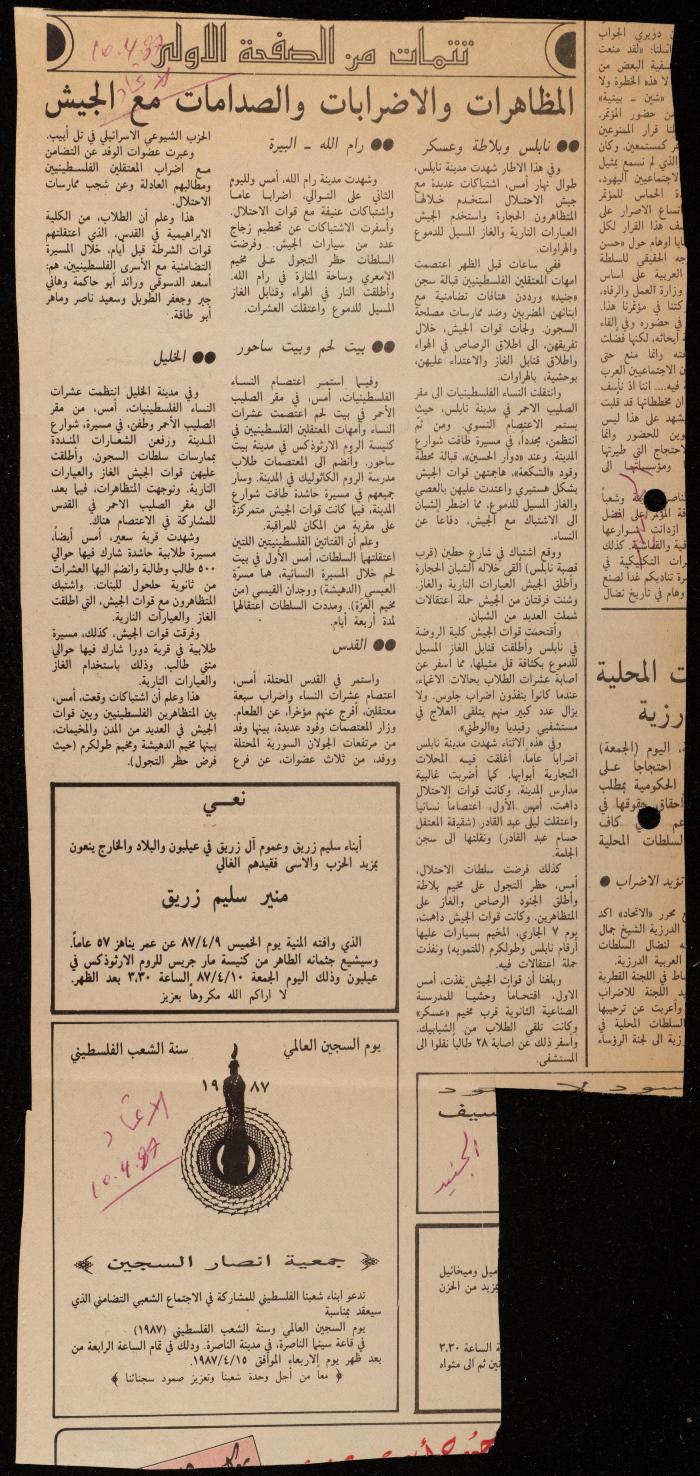 تتمات من الصفحة الاولى
10.4.87
الاتحاد
المظاهرات والاضرابات والصدامات مع الجيش
●● نابلس وبلاطة وعسكر
وفي هذا الاطار شهدت مدينة نابلس،
طوال نهار أمس، اشتباكات عديدة مع
جيش الاحتلال استخدم خلالها
المتظاهرون الحجارة واستخدم الجيش
العيارات النارية والغاز المسيل للدموع
والهراوات.
ففي ساعات قبل الظهر اعتصمت
امهات المعتقلين الفلسطينيين قبالة سجن
«جنيد» ورددن هتافات تضامنية مع
ابنائهن المضربين وضد ممارسات مصلحة
السجون. ولجأت قوات الجيش، خلال
تفريقهن، الى اطلاق الرصاص في الهواء
واطلاق قنابل الغاز والاعتداء عليهن،
بوحشية، بالهراوات.
وانتقلت النساء الفلسطينيات الى مقر
الصليب الاحمر في مدينة نابلس، حيث
يستمر الاعتصام النسوي. ومن ثم
انتظمن، مجدداً، في مسيرة طافت شوارع
المدينة. وعند «دوار الحسين»، قبالة محطة
وقود «الشكعة»، هاجمتهن قوات الجيش
بشكل هستيري واعتدت عليهن بالعصي
والغاز المسيل للدموع، مما اضطر الشبان
الى الاشتباك مع الجيش، دفاعاً عن
النساء.
ووقع اشتباك في شارع حطين (قرب
قصبة نابلس) ألقى خلاله الشبان الحجارة
وأطلق الجيش العيارات النارية والغاز.
وشنت فرقتان من الجيش حملة اعتقالات
شملت العديد من الشبان.
وأقتحمت قوات الجيش كلية الروضة
في نابلس وأطلقت قنابل الغاز المسيل
للدموع بكثافة قل مثيلها، مما أسفر عن
اصابة عشرات الطلاب بحالات الاغماء،
عندما كانوا ينفذون اضراب جلوس. ولا
يزال عدد كبير منهم يتلقى العلاج في
مستشفيي رفيديا و«الوطني».
وفي هذه الاثناء شهدت مدينة نابلس
اضرابا عاما، أغلقت فيه المحلات
التجارية أبوابها. كما أضربت غالبية
مدارس المدينة. وكانت قوات الاحتلال
داهمت، أمس الأول، اعتصاماً نسائيا
واعتقلت ليلى عبد القادر (شقيقة المعتقل
حسام عبد القادر) ونقلتها الى سجن
الجلمة.
كذلك فرضت سلطات الاحتلال،
أمس، حظر التجول على مخيم بلاطة
وأطلق الجنود الرصاص والغاز على
المتظاهرين. وكانت قوات الجيش داهمت،
يوم ٧ الجاري، المخيم بسيارات عليها
أرقام نابلس وطولكرم (للتمويه) ونفذت
حملة اعتقالات فيه.
وبلغنا أن قوات الجيش نفذت، أمس
الاول، اقتحاماً وحشياً للمدرسة
الصناعية الثانوية قرب مخيم «عسكر»
وكانت تلقي الطلاب من الشبابيك.
وأسفر ذلك عن اصابة ٢٨ طالباً نقلوا الى
المستشفى.
●● رام الله ـ البيرة
وشهدت مدينة رام الله، أمس ولليوم
الثاني على التوالي، اضرابا عاما
واشتباكات عنيفة مع قوات الاحتلال.
وأسفرت الاشتباكات عن تحطيم زجاج
عدد من سيارات الجيش. وفرضت
السلطات حظر التجول على مخيم
الامعري وساحة المنارة في رام الله.
وأطلقت النار في الهواء وقنابل الغاز
المسيل للدموع واعتقلت العشرات.
●● بيت لحم وبيت ساحور
وفيما استمر اعتصام النساء
الفلسطينيات، أمس، في مقر الصليب
الأحمر في بيت لحم اعتصمت عشرات
النساء وأمهات المعتقلين الفلسطينيين في
كنيسة الروم الارثوذكس في مدينة بيت
ساحور. وأنضم الى المعتصمات طلاب
مدرسة الروم الكاثوليك في المدينة. وسار
جميعهم في مسيرة حاشدة طافت شوارع
المدينة، فيما كانت قوات الجيش متمركزة
على مقربة من المكان للمراقبة.
وعلم أن الفتاتين الفلسطينيتين اللتين
اعتقلتهما السلطات، أمس الأول في بيت
لحم خلال المسيرة النسائية، هما مسرة
العيسي (الدهيشة) ووجدان القيسي (من
مخيم العزة). ومددت السلطات اعتقالهما
لمدة أربعة أيام.
●● القدس
واستمر في القدس المحتلة، أمس،
اعتصام عشرات النساء واضراب سبعة
معتقلين، أفرج عنهم مؤخرا، عن الطعام.
وزار المعتصمات وفود عديدة، بينها وفد
من مرتفعات الجولان السورية المحتلة
ووفد، من ثلاث عضوات، عن فرع
الحزب الشيوعي الاسرائيلي في تل أبيب.
وعبرت عضوات الوفد عن التضامن
مع اضراب المعتقلين الفلسطينيين
ومطالبهم العادلة وعن شجب ممارسات
الاحتلال.
هذا وعلم أن الطلاب، من الكلية
الابراهيمية في القدس، الذي اعتقلتهم
قوات الشرطة قبل أيام، خلال المسيرة
التضامنية مع الأسرى الفلسطينيين، هم:
أسعد الدسوقي ورائد أبو حاكمة وهاني
جبر وجعفر الطويل وسعيد ناصر وماهر
أبو طاقة.
●● الخليل
وفي مدينة الخليل انتظمت عشرات
النساء الفلسطينيات، أمس، من مقر
الصليب الأحمر وطفن، في مسيرة، شوارع
المدينة ورفعن الشعارات المنددة
بممارسات سلطات السجون. وأطلقت
عليهن قوات الجيش الغاز والعيارات
النارية. وتوجهت المتظاهرات، فيما بعد،
الى مقر الصليب الاحمر في القدس
للمشاركة في الاعتصام هناك.
وشهدت قرية سعير، أمس أيضاً،
مسيرة طلابية حاشدة شارك فيها حوالي
٥٠٠ طالب وطالبة وانضم اليها العشرات
من ثانوية حلحول للبنات. واشتبك
المتظاهرون مع قوات الجيش، التي اطلقت
الغاز والعيارات النارية.
وفرقت قوات الجيش، كذلك، مسيرة
طلابية في قرية دورا شارك فيها حوالي
مئتي طالب، وذلك باستخدام الغاز
والعيارات النارية.
هذا وعلم أن اشتباكات وقعت، أمس،
بين المتظاهرين الفلسطينيين وبين قوات
الجيش في العديد من المدن والمخيمات،
بينها مخيم الدهيشة ومخيم طولكرم (حيث
فرض حظر التجول).
نعي
أبناء سليم زريق وعموم آل زريق في عيلبون والبلاد والخارج ينعون
بمزيد الحزب والاسى فقيدهم الغالي
منير سليم زريق
الذي وافته المنية يوم الخميس ٨٧/٤/٩ عن عمر يناهز ٥٧ عاماً.
وسيشيع جثمانه الطاهر من كنيسة مار جريس للروم الارثوذكس في
عيلبون وذلك اليوم الجمعة ٨٧/٤/١٠ الساعة ٣،٣٠ بعد الظهر.
لا اراكم الله مكروها بعزيز
يوم السجين العالمي
سنة الشعب الفلسطيني
١٩ ٨٧
الاتحاد
10.4.87
جمعية انصار السجين
تدعو ابناء شعبنا الفلسطيني للمشاركة في الاجتماع الشعبي التضامني الذي
سيعقد بمناسبة
يوم السجين العالمي وسنة الشعب الفلسطيني (١٩٨٧)
في قاعة سينما الناصرة، في مدينة الناصرة. وذلك في تمام الساعة الرابعة من
بعد ظهر يوم الاربعاء الموافق ١٩٨٧/٤/١٥.
﴿ معاً من أجل وحدة شعبنا وتعزيز صمود سجنائنا ﴾
دويري الجواب
اسئلنا: «لقد منعت
البعض من
لا هذه الخطوة ولا
«شين ـ بيتية»
من حضور المؤتمر.
قرار الممنوعين
كمستمعين. وكان
الذي لم نسمع بمثيل
لاجتماعيين اليهود،
الحماس للمؤتمر
الاصرار على
هذا القرار لكل
اوهام حول «حسن
الحقيقي للسلطة
العربية على اساس
وزارة العمل والرفاه،
كتنا في مؤتمرنا هذا.
في حضوره وفي إلقاء
أبحاثه، لكنها فضلت
وانما منع حتى
الاجتماعيين العرب
فيه.... اننا اذ نأسف
ان مخططاتها قد قلبت
على هذا ليس
للحضور وانما
الاحتجاج التي طيرتها
ت المحلية
درزية
اليوم (الجمعة)
احتجاجاً على
الحكومية بمطلب
حقوقها في
السلطات المحلية
تؤيد الاضراب ●
محرر «الاتحاد» اكد
الدرزية الشيخ جمال
لنضال السلطات
العربية الدرزية.
في اللجنة القطرية
اللجنة للاضراب
وأعربت عن ترحيبها
السلطات المحلية في
الى لجنة الرؤساء
الجنيد
وميخائيل
من الحزن
الساعة ٣،٣٠
ثم الى مثواه